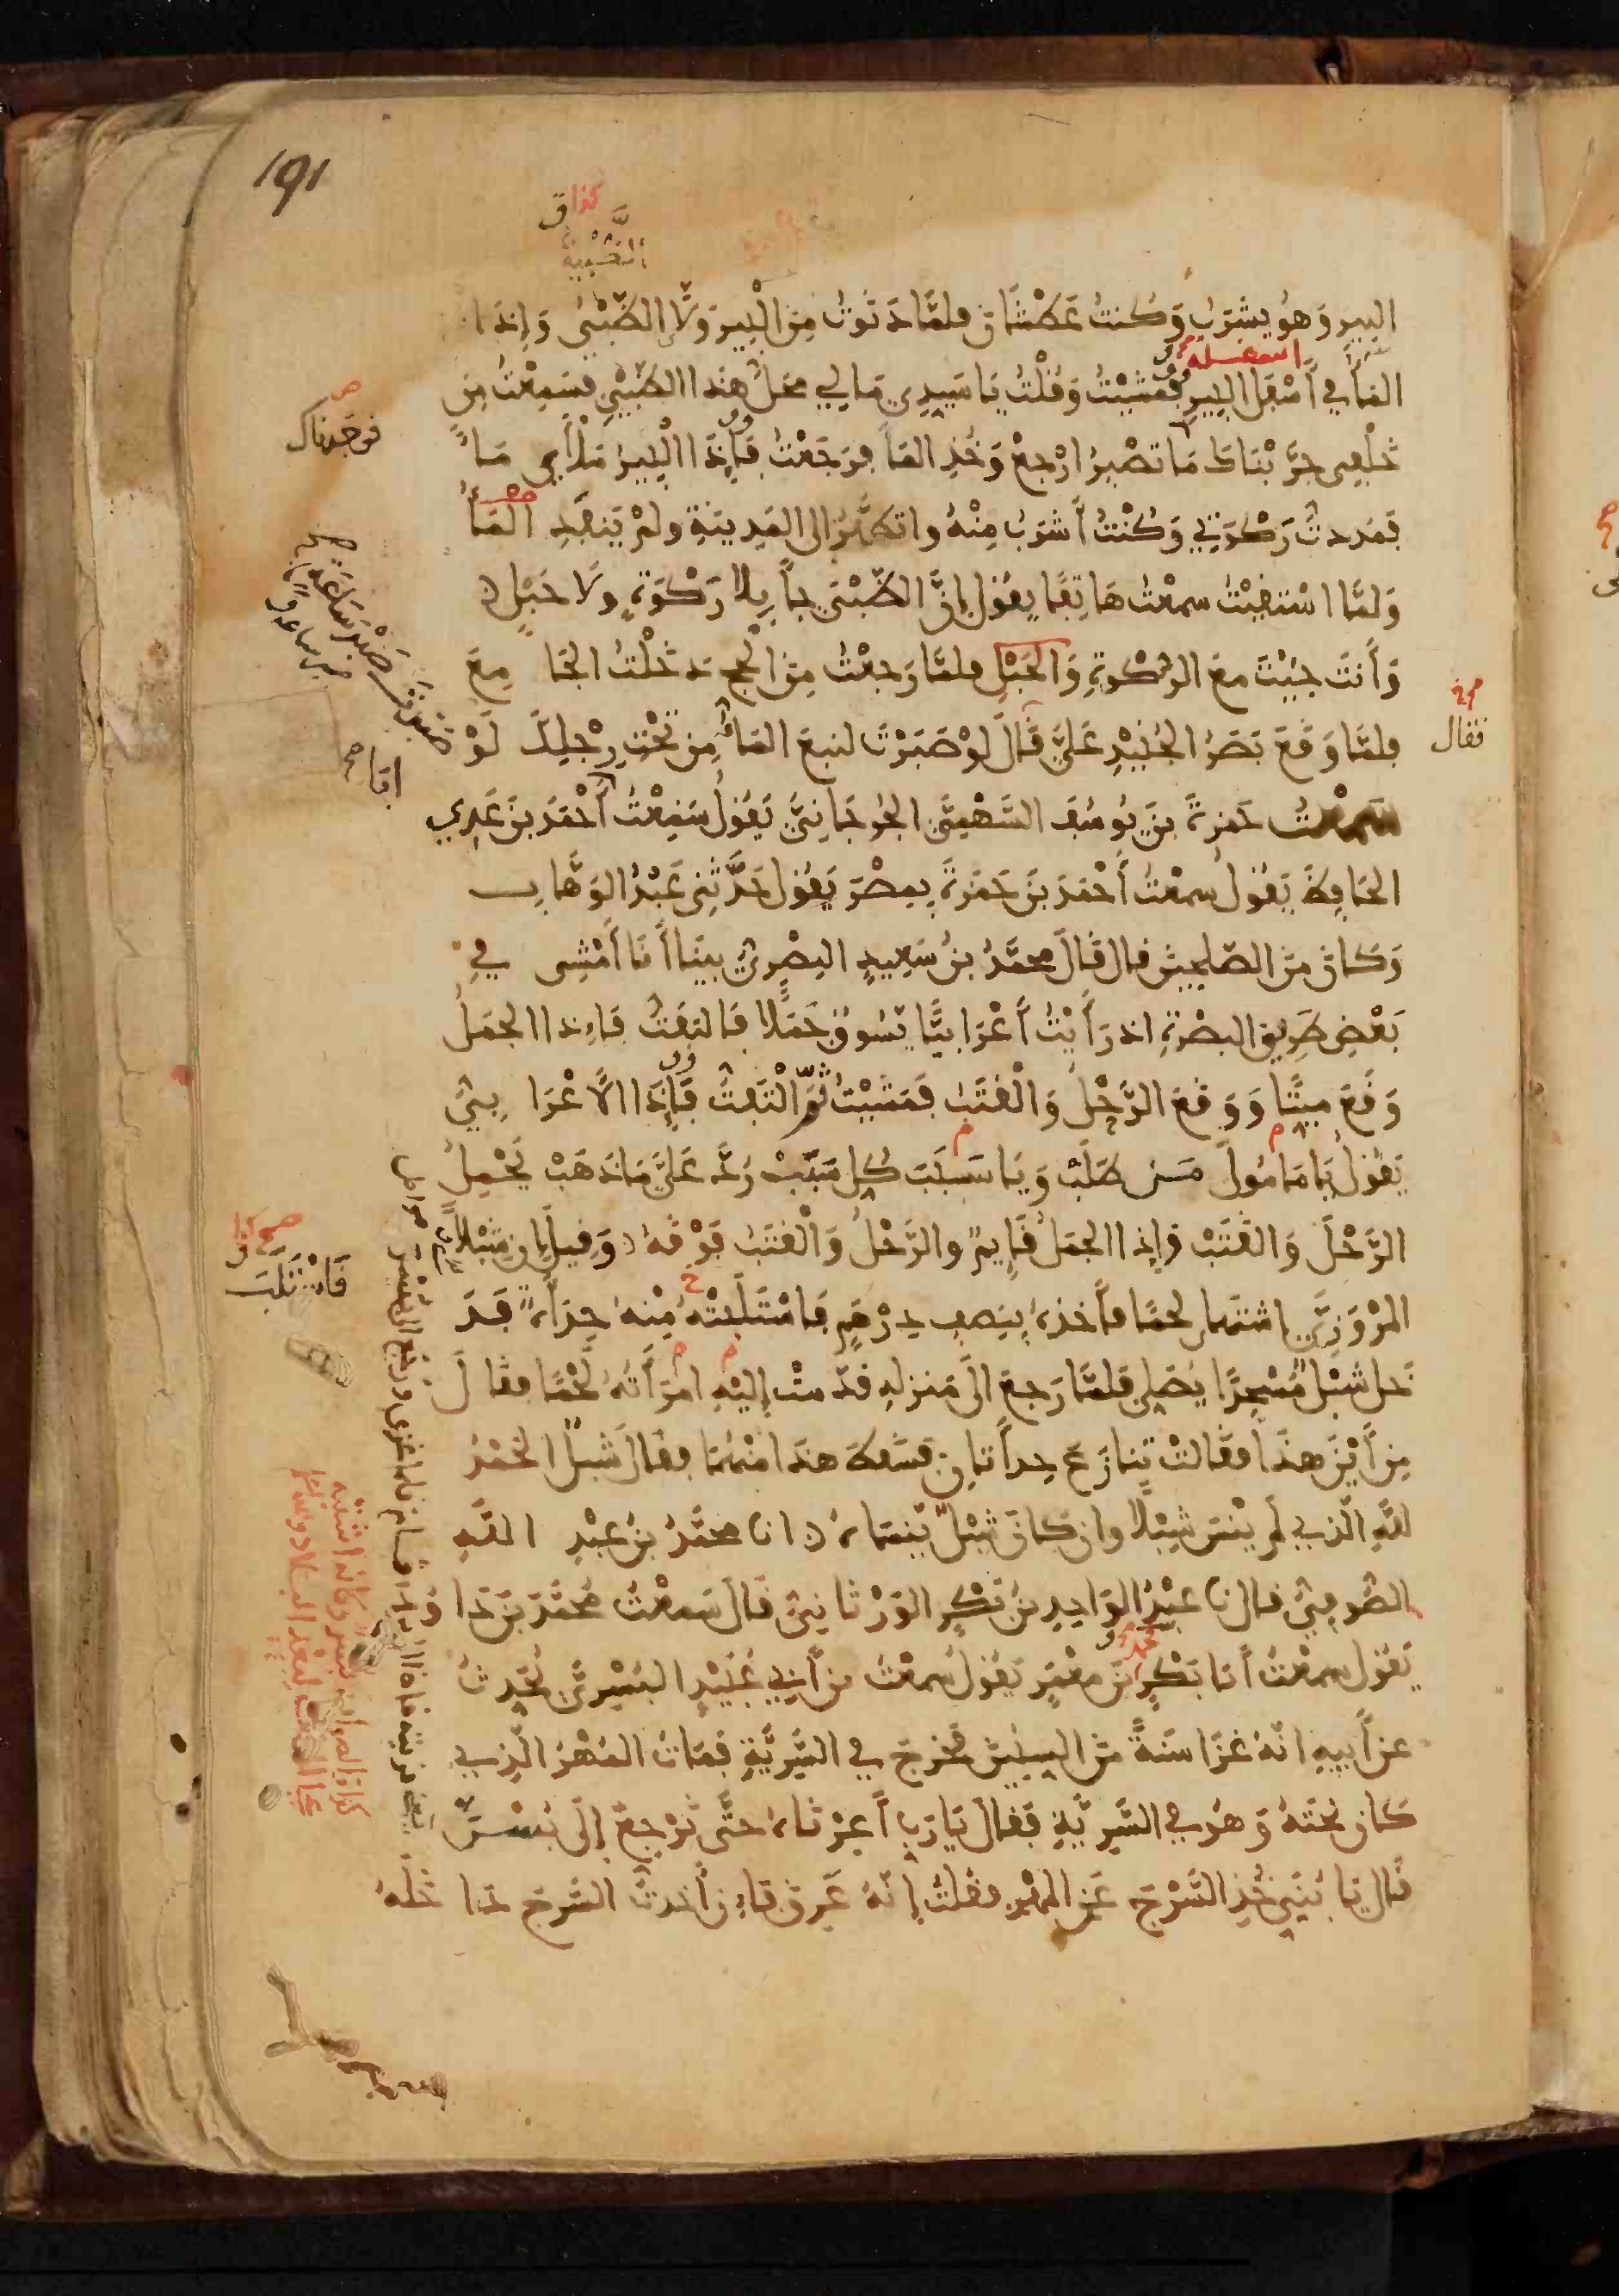 191
البير وَهوُ يشرَب وَكنتُ عَطْشَان فلمَّا دَنَوتُ مِنَ الْبِيرِ وَلَّا الظَّبْىُ وَإِذا
المَأُ في أَسْفِل البيرِ فمَشَيْتُ وَقُلْتُ يَا سَيِدِي مَا لِي محَلُّ هذا الظَّبْيِ فسَمِعْتُ مِن
خلْفِى جرَّبْنَاكَ مَا تصْبِرُ ارْجعْ وَخُذِ المَاَ فرَجَعْتُ فَإِذَا الْبِيرُ مَلْأَى مَاً
فَمَلَاتُ رَكْوَتِي وَكُنْتُ أَشرَبُ مِنْهُ واتطَهَّرُ إلى المَدِينَةِ ولمْ يَنفَدِ المَأُ
وَلمَّا اسْتَقَيْتُ سمعْتُ هَاتِفًا يقُول إِنَّ الظَّبْىَ جاَ بِلا رَكْوَةٍ ولَا حَبْلٍ
وَأَنتَ جِيْتَ معَ الرَّكْوَةِ وَالحَبْلِ فلمَّا رَجعْتُ مِنَ الْحج دَخَلْتُ الجَا مِعَ
فلمَّا وَقَعَ بَصَرُ الجُنَيْدِ عَليَّ قَالَ لوْ صَبَرْتَ لنبعَ المَاُ مِن تَحْتِ رِجْلِكَ لَوْ
صَبَرْتَ صَبْرَ سَاعَةٍ
سَمعْتُ حَمزةَ بنَ يُوسُفَ السَّهْمِيَّ الجُرجَانِيَّ يَقُولُ سَمِعْتُ أَحْمَدَ بنَ عَدِي
الحَافِظَ يَقُولُ سمعْتُ أَحْمَدَ بنَ حَمْزةَ بِمصْرَ يَقُول حَدَّثنِى عَبْدُ الوَهَّاب
وَكان منَ الصّلِحِينَ قال قَالَ محمَّدُ بنُ سَعِيدٍ البصْرِيُّ بينَا أَنَا أَمْشِى في
بَعْضِ طَرِيقِ البصْرةِ اذ رَأَيْتُ أَعْرَابِيًّا يَسُوقُ جَمَلًا فَالتفَتُّ فَإِذا الجمَلُ
وَقَعَ مَيِّتًا وَوَقعَ الرَّحْلُ وَالْقَتَبُ فَمَشَيْتُ ثُمَّ الْتَفتُّ فَإِذَا الَاعْرَا بِيُّ
يَقُولُ يَا مَامُولَ مَن طَلَبْ وَيَا مسَبِّبَ كُلِ سَبَبْ رُدَّ عَلَيَّ مَا ذهَبْ يَحْمِلُ
الرَّحْلَ وَالقَتَبْ فإِذا الجمَلُ قَايِمٌ والرَّحْلُ وَالْقَتَبُ فَوْقَهُ وَقِيلَ إِن شِبْلًا
المَرْوَزِيَّ اشتهى لحمًا فأَخذهُ بِنِصفِ دِرْهَمٍ فَاسْتَلَبَتْهُ مِنْهُ حِدَأَةٌ فَدَ
خل شبْلٌ مَسْجدًا يُصَلِي فلمَّا رَجعَ الىَ مَنزلهِ قدَّمتْ إليْهِ امْرَأَتُهُ لَحْمًا فقال
مِنْ أَيْنَ هذَا فقَالتْ تنازَعَ حِدأَتان فسَقطَ هذَا مِنْهُمَا فقالَ شبلٌ الحَمْدُ
للهِ الّذي لَمْ يَنْسَ شِبْلًا وإن كَانَ شبْلٌ يَنْسَاهُ انا محمَّدُ بنُ عبْدِ اللهِ
الصُّوفِيُّ قال نا عَبْدُ الوَاحِدِ بنُ بَكْرٍ الوَرْثَانِيُّ قَالَ سَمعْتُ مُحمَّدَ بنَ دَاوُدَ
يَقُول سمعْتُ أَبَا بَكْرِ بنَ مَعْمَرٍ يَقُولُ سمعْتُ بنَ أَبِي عُبَيْدٍ البُسْرِيَّ يُحدِثُ
عن أَبيهِ انّهُ غزَا سَنةً منَ السِنِينَ فخرَجَ في السَّرِيَّةِ فمَاتَ المُهْرُ الّذِي
كان تحْتَهُ وَهوُ في السَّرِيَّةِ فَقالَ يَا رَبِ أَعِرْنَاهُ حتَّى نَرْجِعَ إلَى بُسْرَ
قَالَ يَا بُنَيَّ خُذِ السَّرْجَ عَنِ المهْرِ فقلتُ إِنَّهُ عَرِقٌ فَإِن أَخذتُ السَّرجَ دَاخَلَهُ
فوجدناك
فقال
فَاسْتَلَبَ